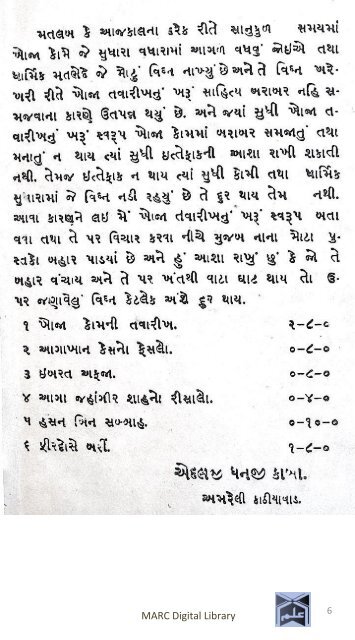 મતલબ કે આજકાલના દરેક રીતે સાનુકુળ સમયમાં
ખોજા કોમે જે સુધારા વધારામાં આગળ વધવું જોઇએ તથા
ધાર્મિક મતભેદે જે મોટું વિઘ્ન નાખ્યું છે અને તે વિઘ્ન ખરે-
ખરી રીતે ખોજા તવારીખનું ખરૂં સાહિત્ય બરાબર નહિ સ-
મજવાના કારણે ઉતપન્ન થયું છે. અને જ્યાં સુધી ખોજા ત-
વારીખનું ખરૂં સ્વરૂપ ખોજા કોમમાં બરાબર સમજાતું તથા
મનાતું ન થાય ત્યાં સુધી ઇત્તેફાકની આશા રાખી શકાતી
નથી. તેમજ ઇત્તેફાક ન થાય ત્યાં સુધી કોમી તથા ધાર્મિક
સુધારામાં જે વિઘ્ન નડી રહ્યું છે તે દુર થાય તેમ નથી.
આવા કારણને લઇ મેં ખોજા તવારીખનું ખરૂં સ્વરૂપ બતા
વવા તથા તે પર વિચાર કરવા નીચે મુજબ નાના મોટા પુ-
સ્તકો બહાર પાડયાં છે અને હું આશા રાખું છું કે જો તે
બહાર વંચાય અને તે પર ખંતથી વાટા ઘાટ થાય તો ઉ-
પર જણાવેલું વિઘ્ન કેટલેક અંશે દુર થાય.
૧ ખોજા કોમની તવારીખ. ૨-૮-૦
૨ આગાખાન કેસનો ફેસલો. ૦-૮-૦
૩ ઇબરત અફઝા. ૦-૮-૦
૪ આગા જહાંગીર શાહનો રીસાલો. ૦-૪-૦
૫ હસન બિન સબ્બાહ. ૦-૧૦-૦
૬ ફીરદોસે બર્રી. ૧-૮-૦
એદલજી ધનજી કાબા.
અમરેલી કાઠીયાવાડ.
MARC Digital Library
6
علم